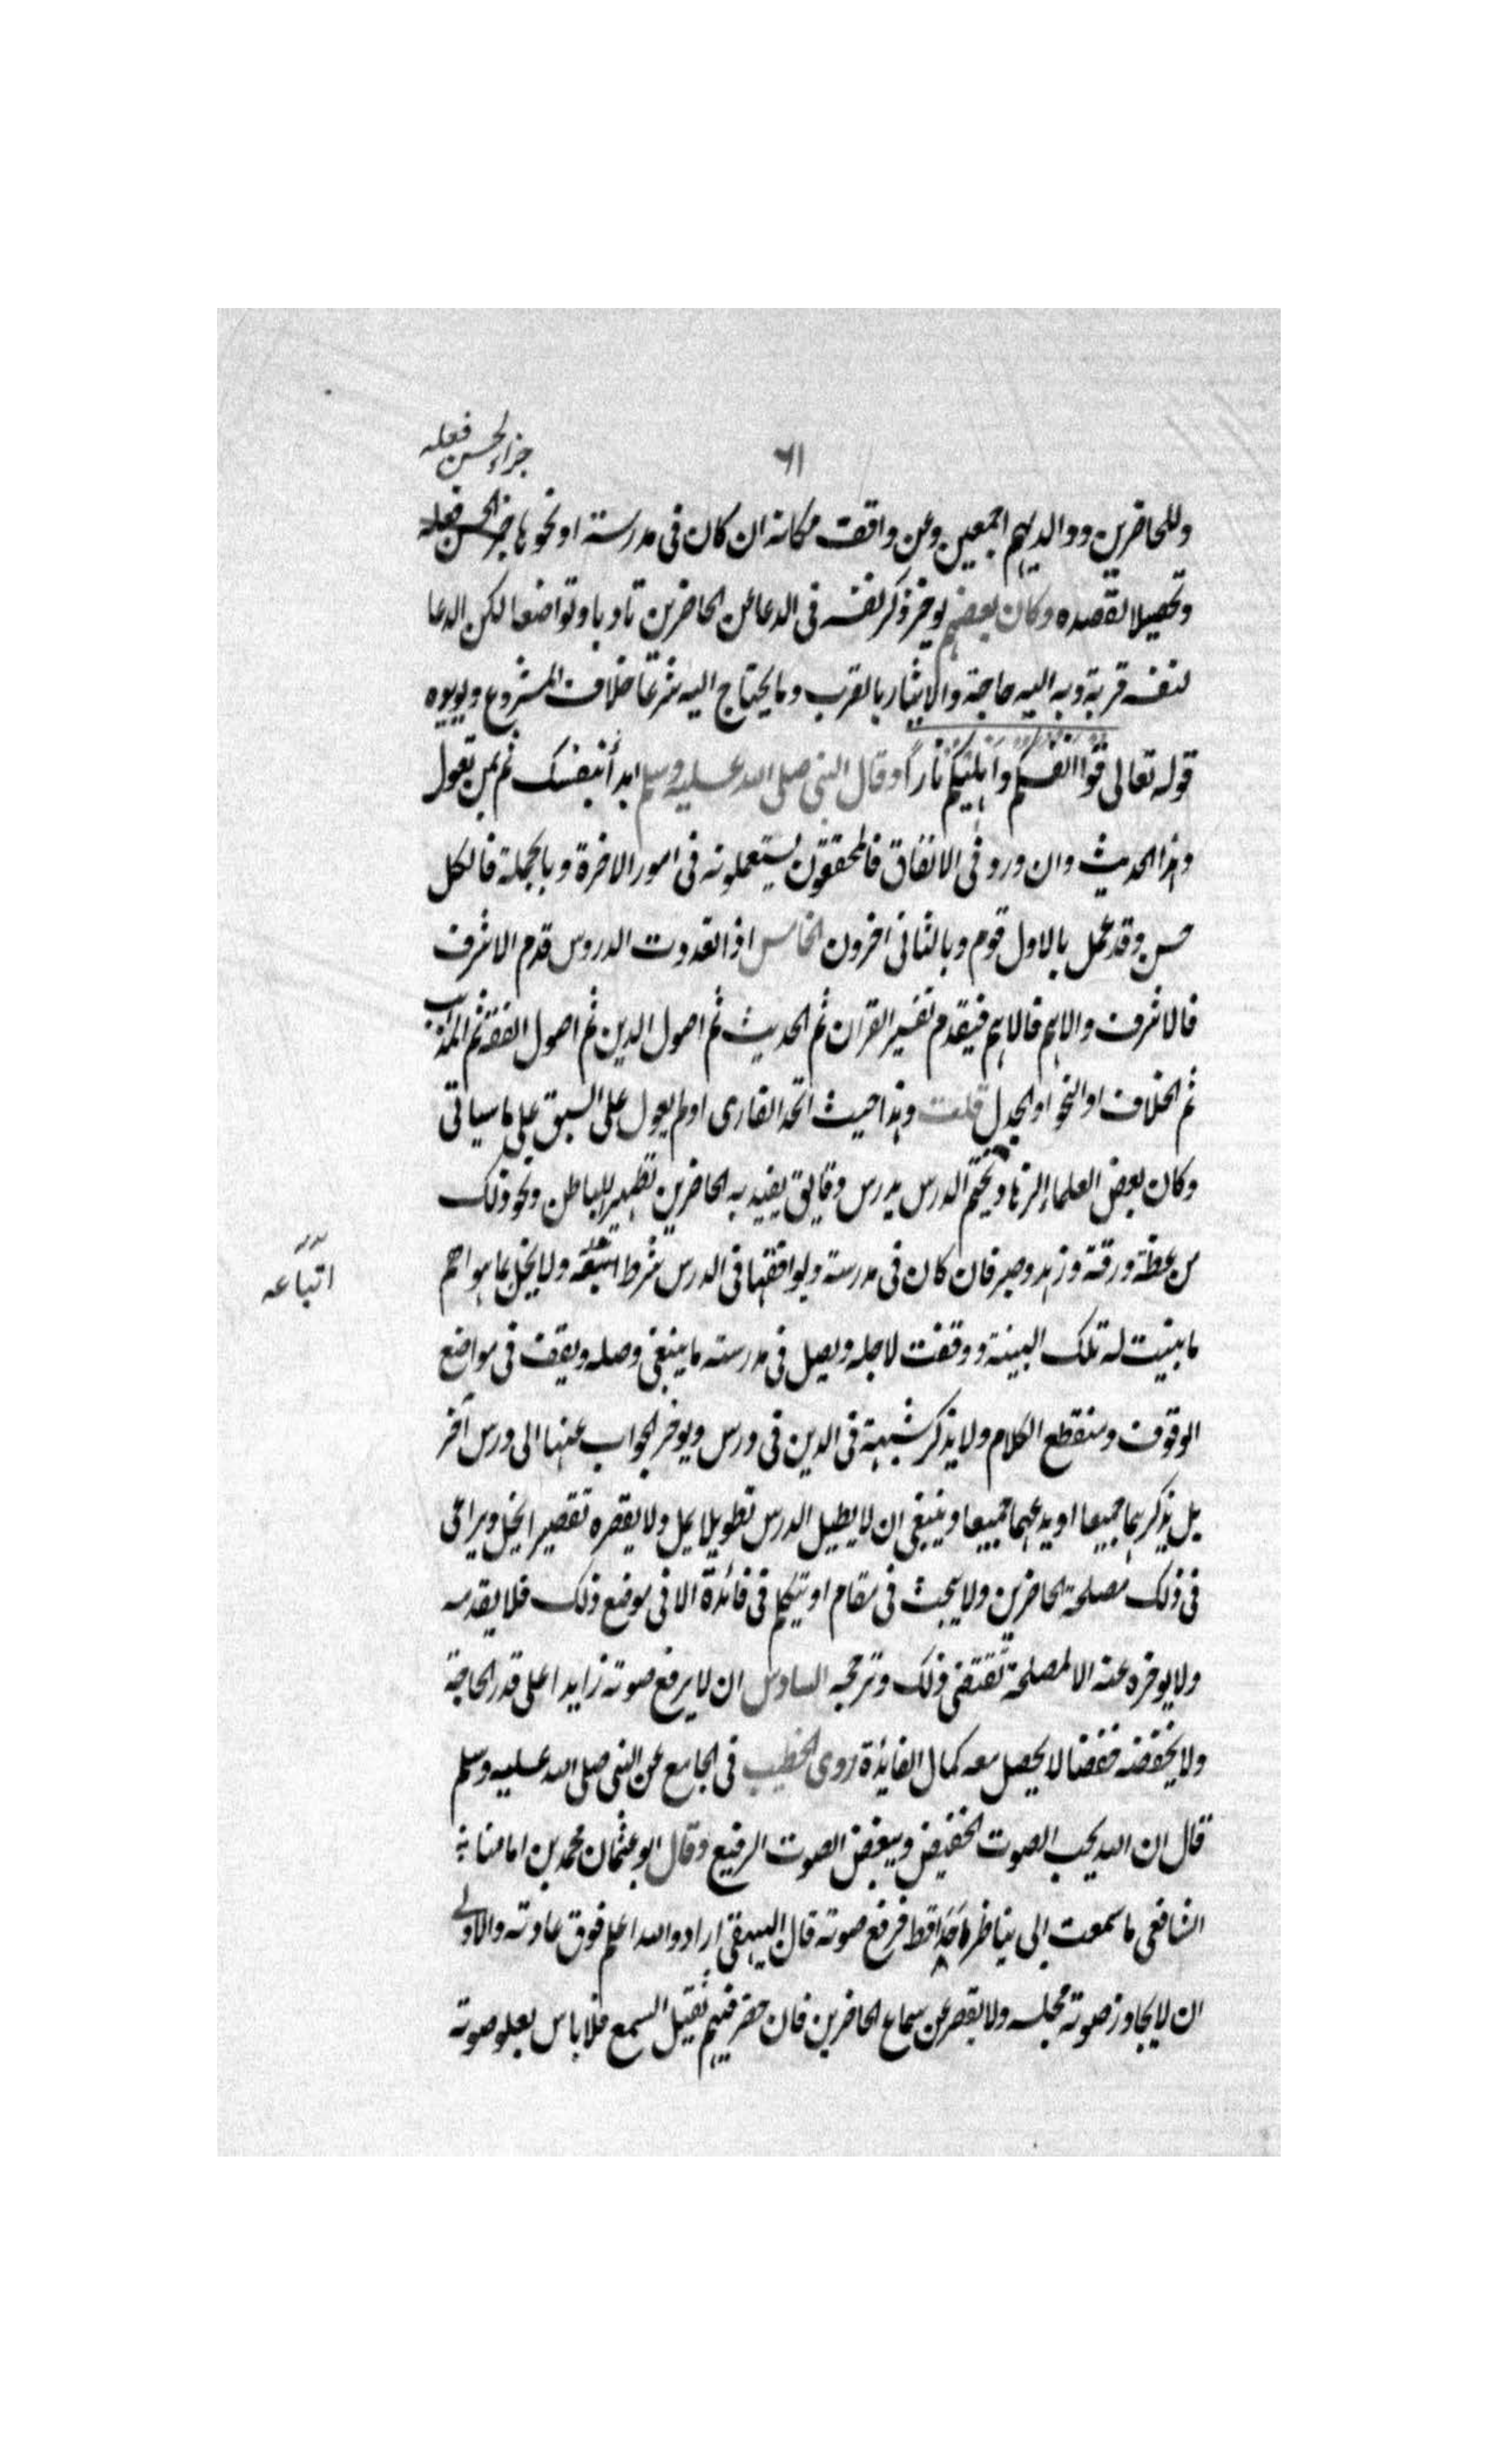 ٦١
جزاء لحسن فعله
وللحاضرين ووالديهم اجمعين وعن واقف مكانه ان كان فى مدرسة او نحوها جزاء لحسن فعله
وتحصيلا لقصده وكان بعضهم يوخر ذكر نفسه فى الدعا عن الحاضرين تادبا وتواضعا لكن الدعا
لنفسه قربة وبه اليه حاجة والايثار بالقرب وما يحتاج اليه شرعًا خلاف المشروع ويويده
قوله تعالى قُوا انفسكم وَاَهْلِيكُم نَارًا وقال النبى صلى الله عليه وسلم ابدأ بنفسك ثم بمن تعول
وهذا الحديث وان ورد فى الانفاق فالمحققون يستعملونه فى امور الاخرة وبالجملة فالكل
حسن وقد عمل بالاول قوم وبالثانى اخرون الخامس اذا تعددت الدروس قدم الاشرف
فالاشرف والاهم فالاهم فيقدم تفسير القران ثم الحديث ثم اصول الدين ثم اصول الفقه ثم المذهب
ثم الخلاف او النحو او الجدل قلت وهذا حيث اتحد القارى او لم يعول على السبق على ما سياتى
وكان بعض العلماء الزهاد يختم الدرس بدرس رقايق يفيد به الحاضرين تطهير الباطن ونحو ذلك
من عظة ورقة وزهد وصبر فان كان فى مدرسة ولواقفها فى الدرس شرط اتبعه ولا يخل بما هو اهم
اتباعه
ما بنيت له تلك البينة ووقفت لاجله ويصل فى درسه ما ينبغى وصله ويقف فى مواضع
الوقوف ومنقطع الكلام ولا يذكر شبهة فى الدين فى درس ويوخر الجواب عنها الى درس آخر
بل يذكرهما جميعا او يدعهما جميعا وينبغى ان لا يطيل الدرس تطويلا يمل ولا يقصره تقصيرا يخل ويراعى
فى ذلك مصلحة الحاضرين ولا يبحث فى مقام او يتكلم فى فائدة الا فى موضع ذلك فلا يقدمه
ولا يوخره عنه الا لمصلحة تقتضى ذلك وترجحه السادس ان لا يرفع صوته زايدا على قدر الحاجة
ولا يخفضه خفضا لا يحصل معه كمال الفايدة روى الخطيب فى الجامع عن النبى صلى الله عليه وسلم
قال ان الله يحب الصوت الخفيض ويبغض الصوت الرفيع وقال ابو عثمان محمد بن امامنا
الشافعى ما سمعت ابى يناظر اَحَدًا قط فرفع صوته قال البيهقى اراد والله اعلم فوق عادته والاولى
ان لا يجاوز صوته مجلسه ولا يقصر عن سماع الحاضرين فان حضر فيهم ثقيل السمع فلا باس بعلو صوته